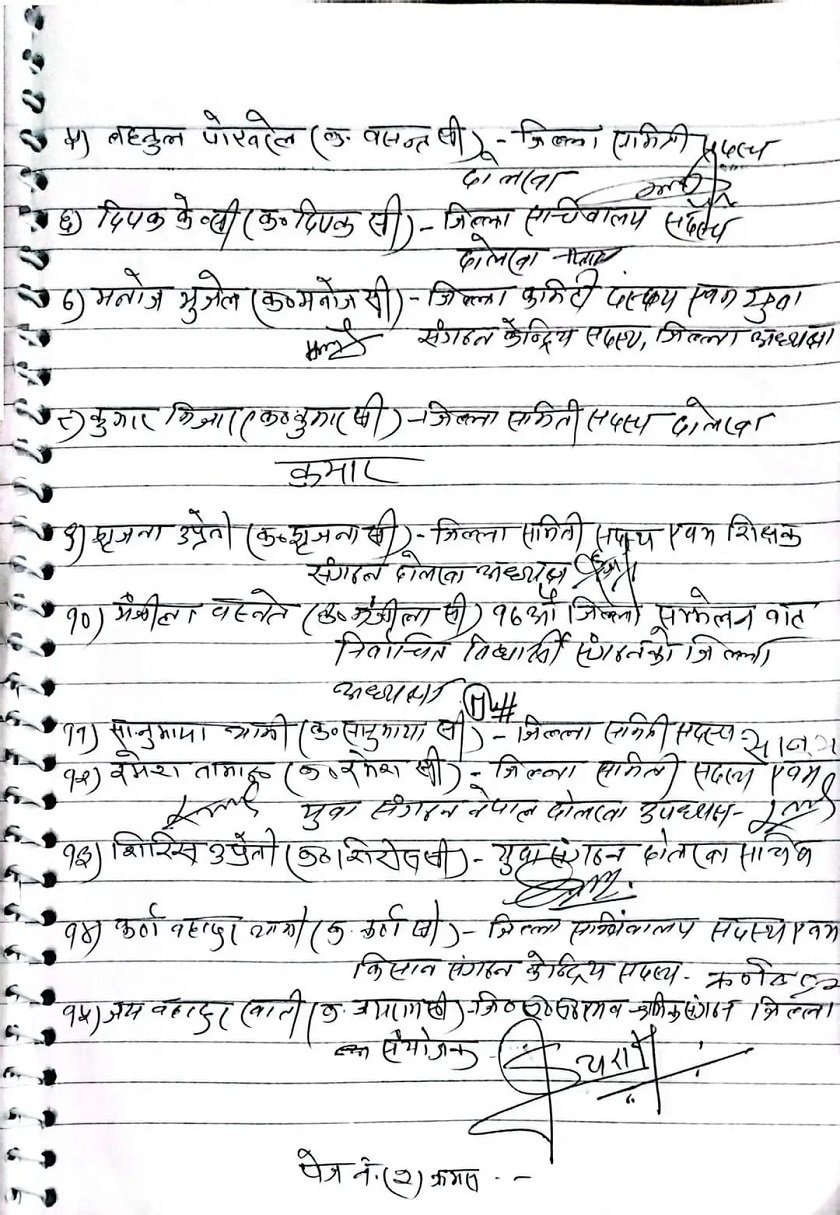 ५) बहकुल पोखरेल (क. वसन्त सी) - जिल्ला समिती सदस्य
दोलखा
६) दिपक के॰सी (क॰ दिपक सी) - जिल्ला सचिवालय सदस्य
दोलखा
७) मनोज भुजेल (क॰ मनोज सी) - जिल्ला कमिटी सदस्य एवम युवा
संगठन केन्द्रिय सदस्य, जिल्ला अध्यक्ष
८) कुमार (क॰ कुमार सी) - जिल्ला समिती सदस्य दोलखा
कुमार
९) सृजना उप्रेती (क॰ सृजना सी) - जिल्ला समिती सदस्य एवम शिक्षक
संगठन दोलखा अध्यक्ष
१०) मञ्जीला वस्नेत (क॰ मञ्जीला सी) १६औं जिल्ला सम्मेलन वाट
निर्वाचित विद्यार्थी संगठनको जिल्ला
अध्यक्ष
११) सानुमाया (क॰ सानुमाया सी) - जिल्ला समिती सदस्य
१२) रमेश तामाङ (क॰ रमेश सी) - जिल्ला समिती सदस्य एवम
युवा संगठन नेपाल दोलखा उपाध्यक्ष -
१३) शिरिस उप्रेती (क॰ शिरीस सी) - युवा संगठन दोलखा सचिव
१४) कर्ण वहादुर (क. कर्ण सी) - जिल्ला सचिवालय सदस्य एवम
किसान संगठन केन्द्रिय सदस्य -
१५) जय वहादुर खाती संगठन जिल्ला
संयोजक
पेज नं. (२) क्रमस . - -